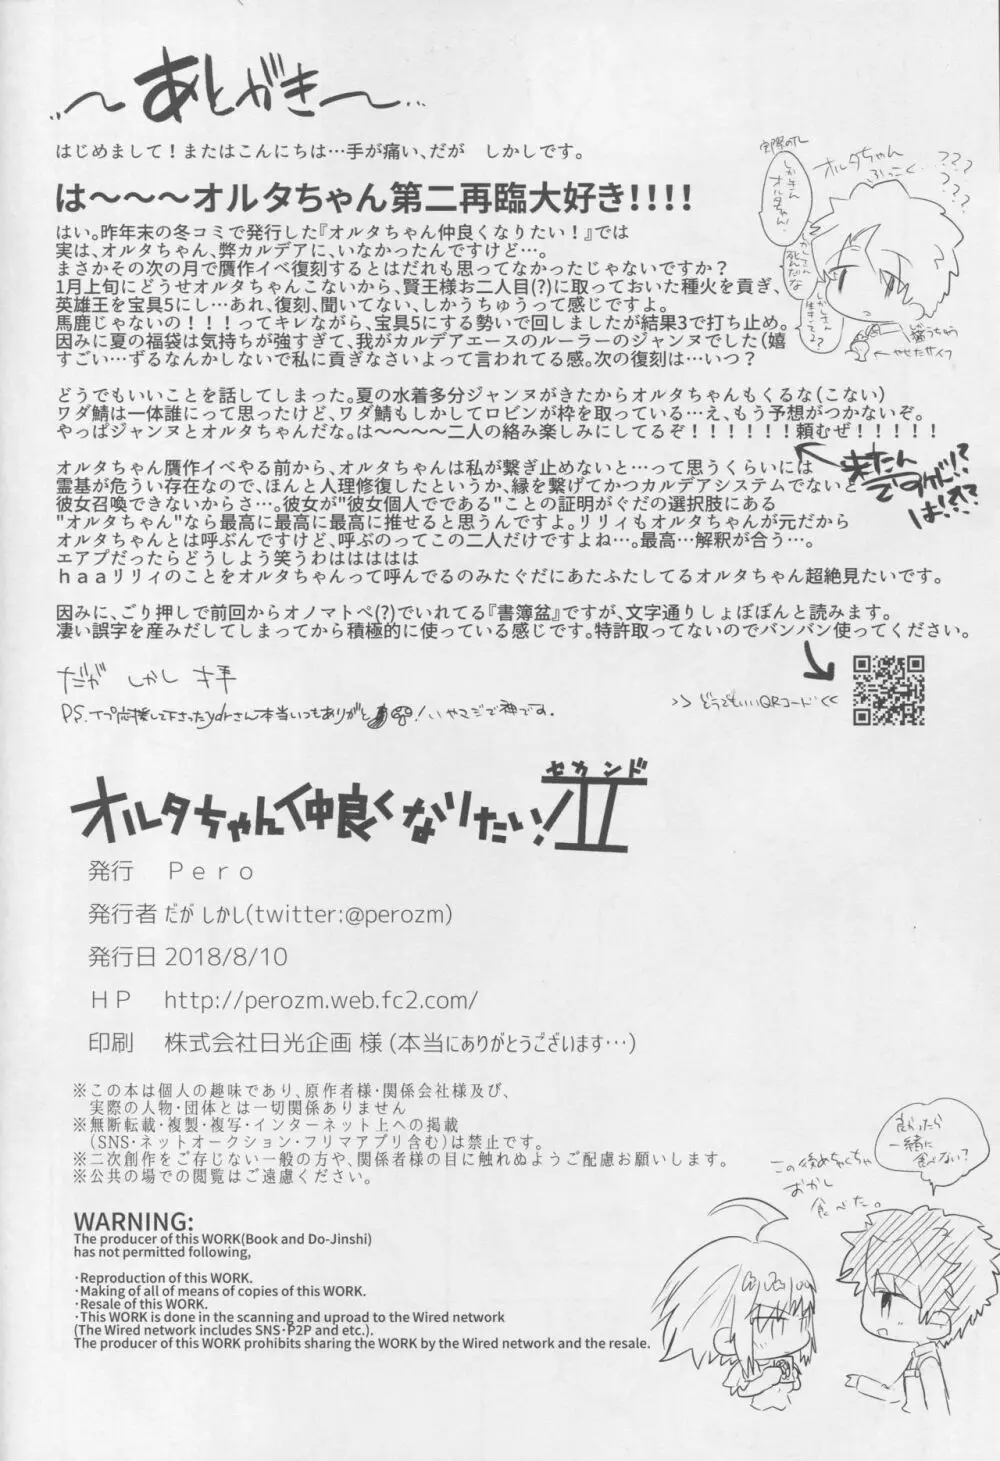 ～あとがき～…
はじめまして！またはこんにちは…手が痛い、だが　しかしです。
は～～～オルタちゃん第二再臨大好き！！！！
はい。昨年末の冬コミで発行した『オルタちゃん仲良くなりたい！』では
実は、オルタちゃん、弊カルデアに、いなかったんですけど…。
まさかその次の月で贋作イベ復刻するとはだれも思ってなかったじゃないですか？
1月上旬にどうせオルタちゃんこないから、賢王様お二人目(?)に取っておいた種火を貢ぎ、
英雄王を宝具5にし…あれ、復刻、聞いてない、しかうちゅうって感じですよ。
馬鹿じゃないの！！！ってキレながら、宝具5にする勢いで回しましたが結果3で打ち止め。
因みに夏の福袋は気持ちが強すぎて、我がカルデアエースのルーラーのジャンヌでした（嬉
すごい…ずるなんかしないで私に貢ぎなさいよって言われてる感。次の復刻は…いつ？
どうでもいいことを話してしまった。夏の水着多分ジャンヌがきたからオルタちゃんもくるな（こない）
ワダ鯖は一体誰にって思ったけど、ワダ鯖もしかしてロビンが枠を取っている…え、もう予想がつかないぞ。
やっぱジャンヌとオルタちゃんだな。は～～～～二人の絡み楽しみにしてるぞ！！！！！！頼むぜ！！！！！
来たん
ですけど!?
は!?!?
オルタちゃん贋作イベやる前から、オルタちゃんは私が繋ぎ止めないと…って思うくらいには
霊基が危うい存在なので、ほんと人理修復したというか、縁を繋げてかつカルデアシステムでないと
彼女召喚できないからさ…。彼女が"彼女個人でである"ことの証明がぐだの選択肢にある
"オルタちゃん"なら最高に最高に最高に推せると思うんですよ。リリィもオルタちゃんが元だから
オルタちゃんとは呼ぶんですけど、呼ぶのってこの二人だけですよね…。最高…解釈が合う…。
エアプだったらどうしよう笑うわははははは
ｈａａリリィのことをオルタちゃんって呼んでるのみたぐだにあたふたしてるオルタちゃん超絶見たいです。
因みに、ごり押しで前回からオノマトペ(?)でいれてる『書簿盆』ですが、文字通りしょぼぼんと読みます。
凄い誤字を産みだしてしまってから積極的に使っている感じです。特許取ってないのでバンバン使ってください。
だが しかし 拝
＞＞どうでもいいQRコード＜＜
オルタちゃん
ふっこく…
???
???
やせたサイフ
オルタちゃん仲良くなりたい！II
セカンド
発行　Ｐｅｒｏ
発行者 だが しかし(twitter:@perozm)
発行日 2018/8/10
ＨＰ　http://perozm.web.fc2.com/
印刷　株式会社日光企画 様 (本当にありがとうございます…)
※この本は個人の趣味であり、原作者様・関係会社様及び、
実際の人物・団体とは一切関係ありません
※無断転載・複製・複写・インターネット上への掲載
(SNS・ネットオークション・フリマアプリ含む)は禁止です。
※二次創作をご存じない一般の方や、関係者様の目に触れぬようご配慮お願いします。
※公共の場での閲覧はご遠慮ください。
WARNING:
The producer of this WORK(Book and Do-Jinshi)
has not permitted following,
・Reproduction of this WORK.
・Making of all of means of copies of this WORK.
・Resale of this WORK.
・This WORK is done in the scanning and uproad to the Wired network
(The Wired network includes SNS・P2P and etc.).
The producer of this WORK prohibits sharing the WORK by the Wired network and the resale.
一緒に
食べない？
この後めちゃくちゃ
おかし
食べた。